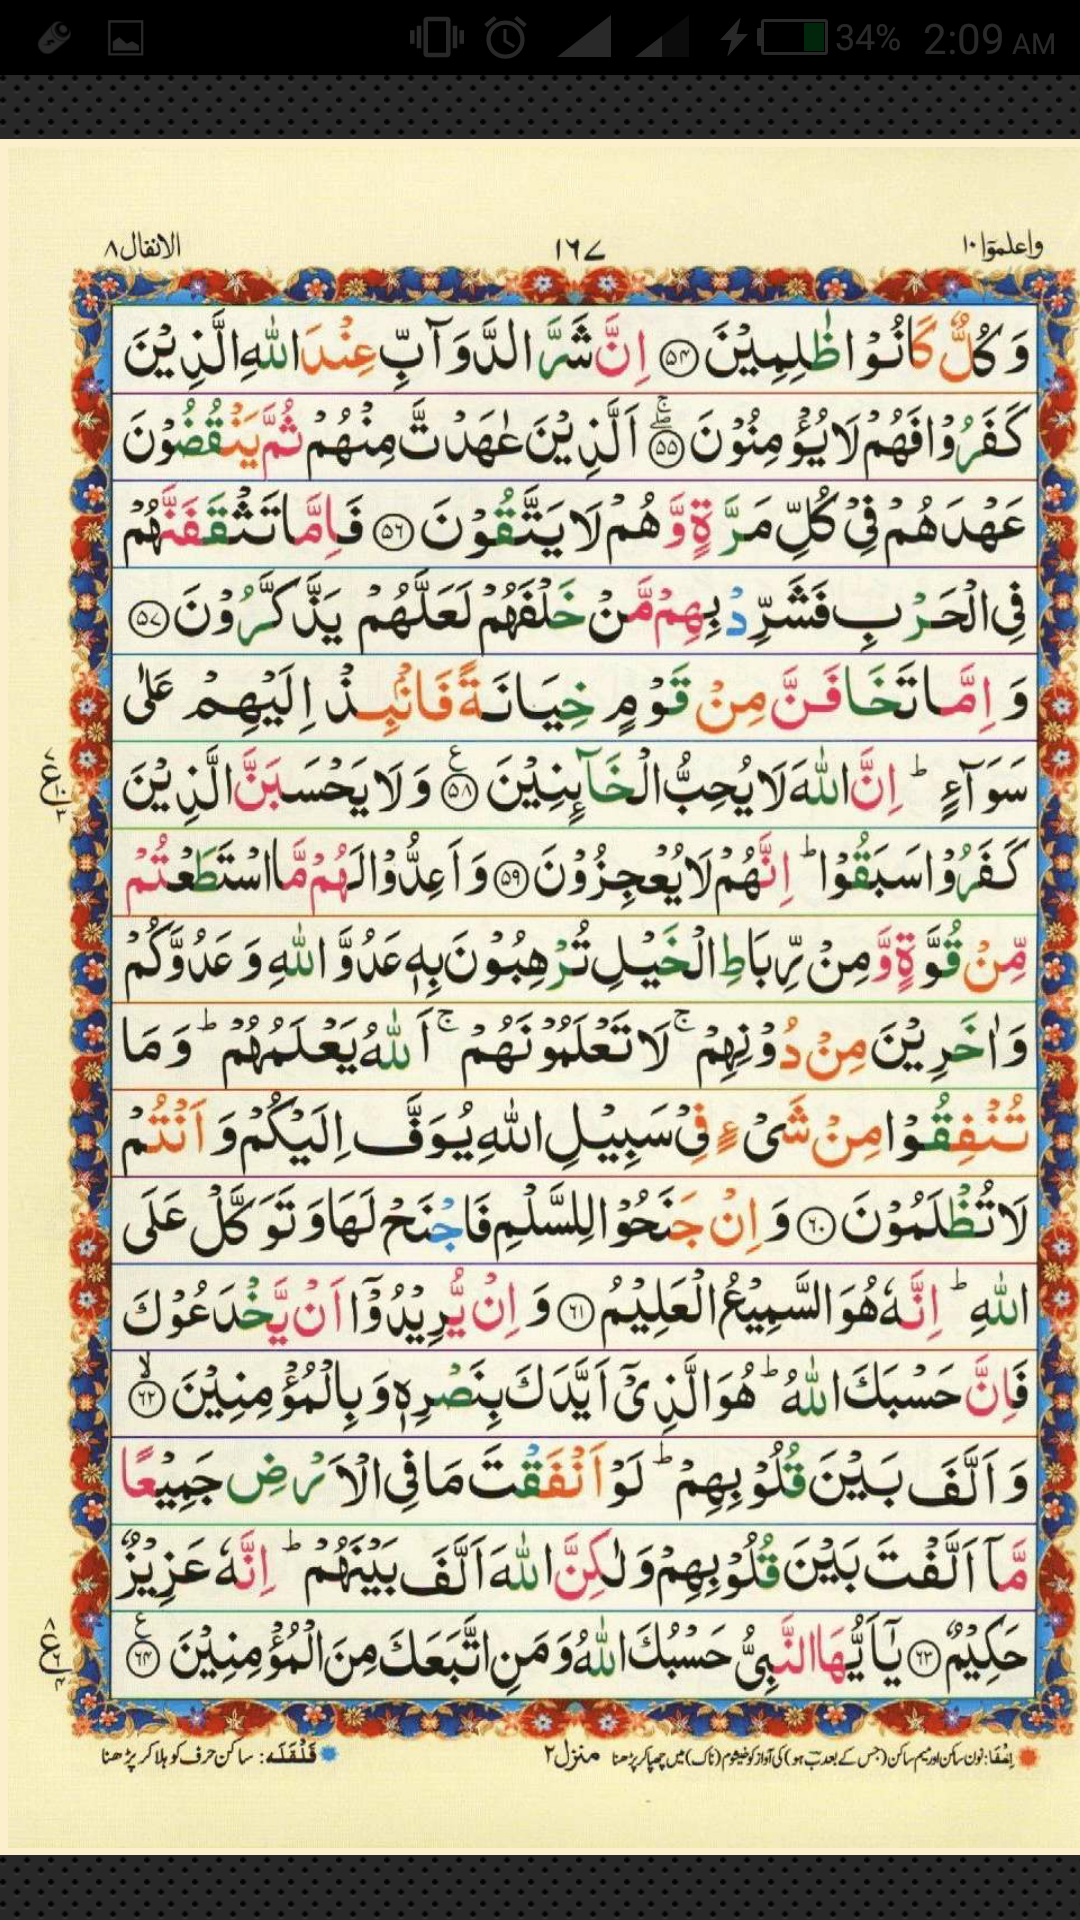 34% 2:09 AM
واعلموا ١٠ ١٦٧ الانفال ٨
وَ كُلٌّ كَانُوْا ظٰلِمِيْنَ ﴿۵۴﴾ اِنَّ شَرَّ الدَّوَآبِّ عِنْدَ اللّٰهِ الَّذِيْنَ
كَفَرُوْا فَهُمْ لَا يُؤْمِنُوْنَ ﴿۵۵﴾ۖۚ اَلَّذِيْنَ عٰهَدْتَّ مِنْهُمْ ثُمَّ يَنْقُضُوْنَ
عَهْدَهُمْ فِيْ كُلِّ مَرَّةٍ وَّ هُمْ لَا يَتَّقُوْنَ ﴿۵۶﴾ فَاِمَّا تَثْقَفَنَّهُمْ
فِي الْحَرْبِ فَشَرِّدْ بِهِمْ مَّنْ خَلْفَهُمْ لَعَلَّهُمْ يَذَّكَّرُوْنَ ﴿۵۷﴾
وَ اِمَّا تَخَافَنَّ مِنْ قَوْمٍ خِيَانَةً فَانْۢبِذْ اِلَيْهِمْ عَلٰى
سَوَآءٍ ؕ اِنَّ اللّٰهَ لَا يُحِبُّ الْخَآئِنِيْنَ ﴿۵۸﴾ع وَ لَا يَحْسَبَنَّ الَّذِيْنَ
كَفَرُوْا سَبَقُوْا ؕ اِنَّهُمْ لَا يُعْجِزُوْنَ ﴿۵۹﴾ وَ اَعِدُّوْا لَهُمْ مَّا اسْتَطَعْتُمْ
مِّنْ قُوَّةٍ وَّ مِنْ رِّبَاطِ الْخَيْلِ تُرْهِبُوْنَ بِهٖ عَدُوَّ اللّٰهِ وَ عَدُوَّكُمْ
وَ اٰخَرِيْنَ مِنْ دُوْنِهِمْ ۚ لَا تَعْلَمُوْنَهُمْ ۚ اَللّٰهُ يَعْلَمُهُمْ ؕ وَ مَا
تُنْفِقُوْا مِنْ شَيْءٍ فِيْ سَبِيْلِ اللّٰهِ يُوَفَّ اِلَيْكُمْ وَ اَنْتُمْ
لَا تُظْلَمُوْنَ ﴿۶۰﴾ وَ اِنْ جَنَحُوْا لِلسَّلْمِ فَاجْنَحْ لَهَا وَ تَوَكَّلْ عَلَى
اللّٰهِ ؕ اِنَّهٗ هُوَ السَّمِيْعُ الْعَلِيْمُ ﴿۶۱﴾ وَ اِنْ يُّرِيْدُوْۤا اَنْ يَّخْدَعُوْكَ
فَاِنَّ حَسْبَكَ اللّٰهُ ؕ هُوَ الَّذِيْۤ اَيَّدَكَ بِنَصْرِهٖ وَ بِالْمُؤْمِنِيْنَ ﴿۶۲﴾ۙ
وَ اَلَّفَ بَيْنَ قُلُوْبِهِمْ ؕ لَوْ اَنْفَقْتَ مَا فِي الْاَرْضِ جَمِيْعًا
مَّاۤ اَلَّفْتَ بَيْنَ قُلُوْبِهِمْ وَ لٰكِنَّ اللّٰهَ اَلَّفَ بَيْنَهُمْ ؕ اِنَّهٗ عَزِيْزٌ
حَكِيْمٌ ﴿۶۳﴾ يٰۤاَيُّهَا النَّبِيُّ حَسْبُكَ اللّٰهُ وَ مَنِ اتَّبَعَكَ مِنَ الْمُؤْمِنِيْنَ ﴿۶۴﴾ع
اِخْفَا: نون ساکن اور میم ساکن (جس کے بعد ب ہو) کی آواز کو خیشوم (ناک) میں چھپا کر پڑھنا منزل ۲ قَلْقَلَه: ساکن حرف کو ہلا کر پڑھنا